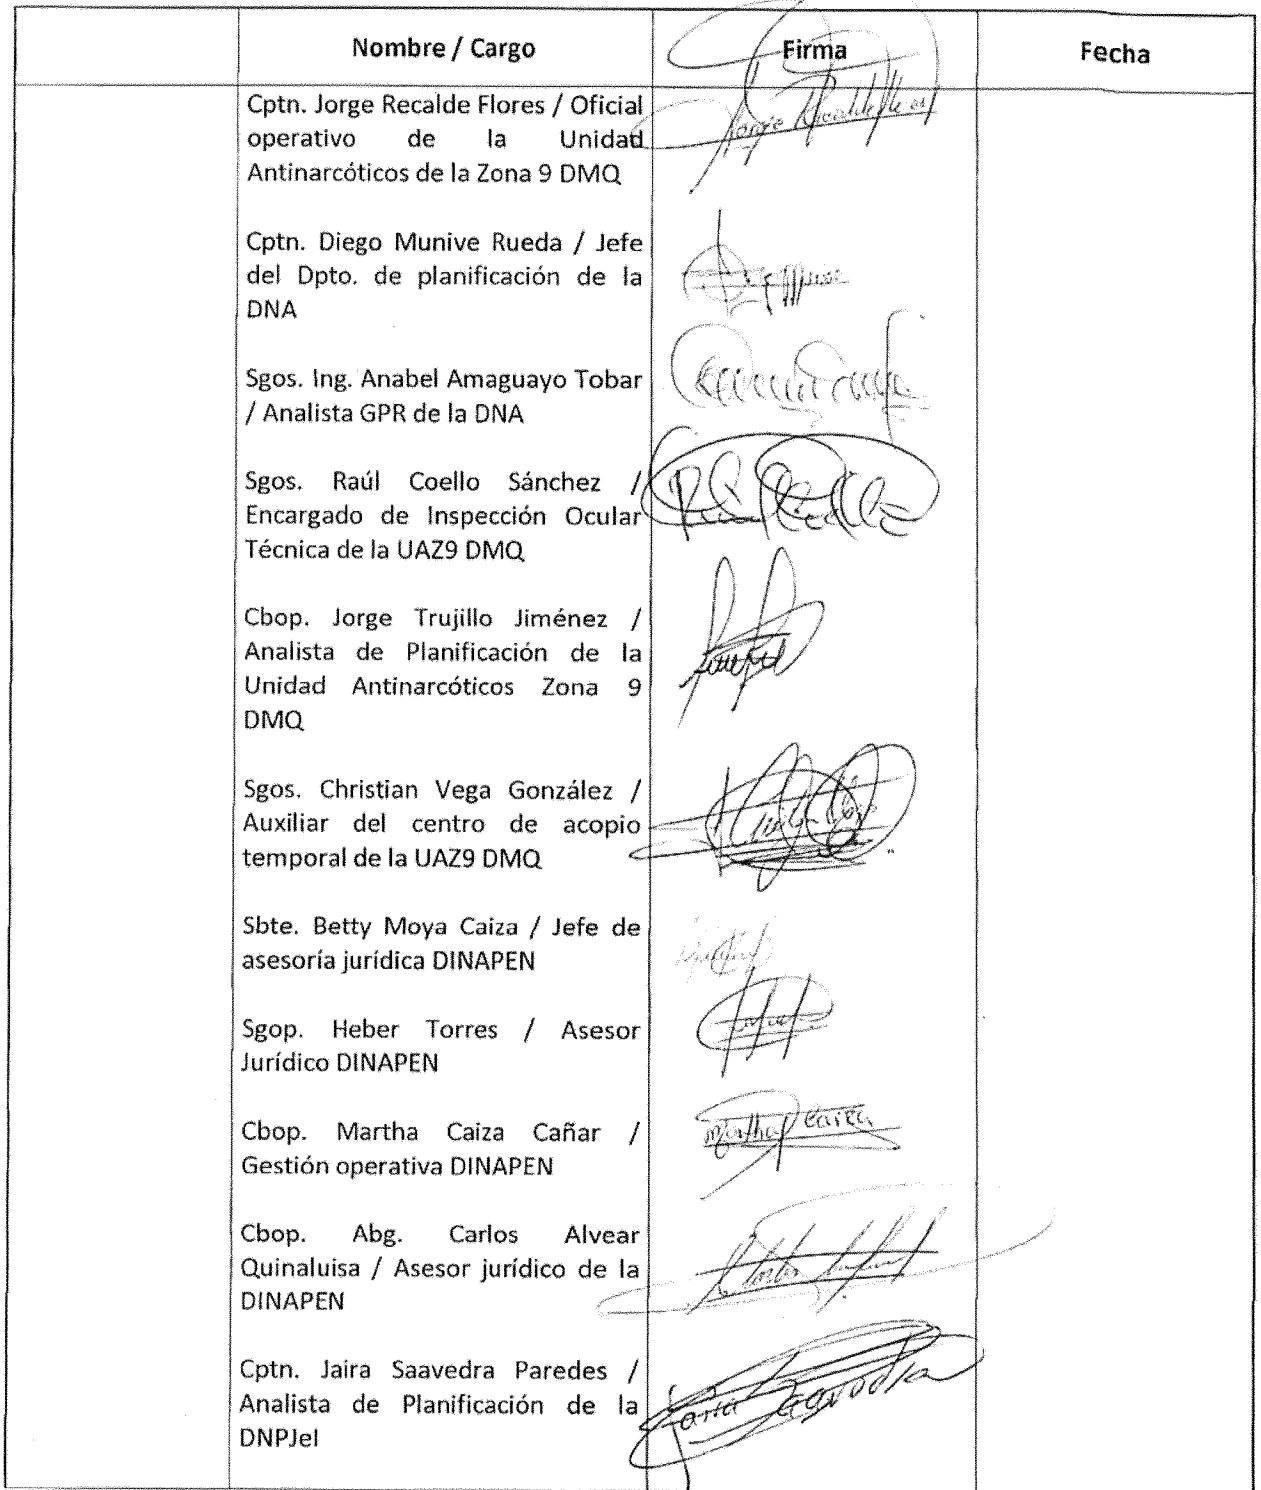 Nombre / Cargo Firma Fecha
Cptn. Jorge Recalde Flores / Oficial
operativo de la Unidad
Antinarcóticos de la Zona 9 DMQ
Cptn. Diego Munive Rueda / Jefe
del Dpto. de planificación de la
DNA
Sgos. Ing. Anabel Amaguayo Tobar
/ Analista GPR de la DNA
Sgos. Raúl Coello Sánchez /
Encargado de Inspección Ocular
Técnica de la UAZ9 DMQ
Cbop. Jorge Trujillo Jiménez /
Analista de Planificación de la
Unidad Antinarcóticos Zona 9
DMQ
Sgos. Christian Vega González /
Auxiliar del centro de acopio
temporal de la UAZ9 DMQ
Sbte. Betty Moya Caiza / Jefe de
asesoría jurídica DINAPEN
Sgop. Heber Torres / Asesor
Jurídico DINAPEN
Cbop. Martha Caiza Cañar /
Gestión operativa DINAPEN
Martha Caiza
Cbop. Abg. Carlos Alvear
Quinaluisa / Asesor jurídico de la
DINAPEN
Cptn. Jaira Saavedra Paredes /
Analista de Planificación de la
DNPJeI